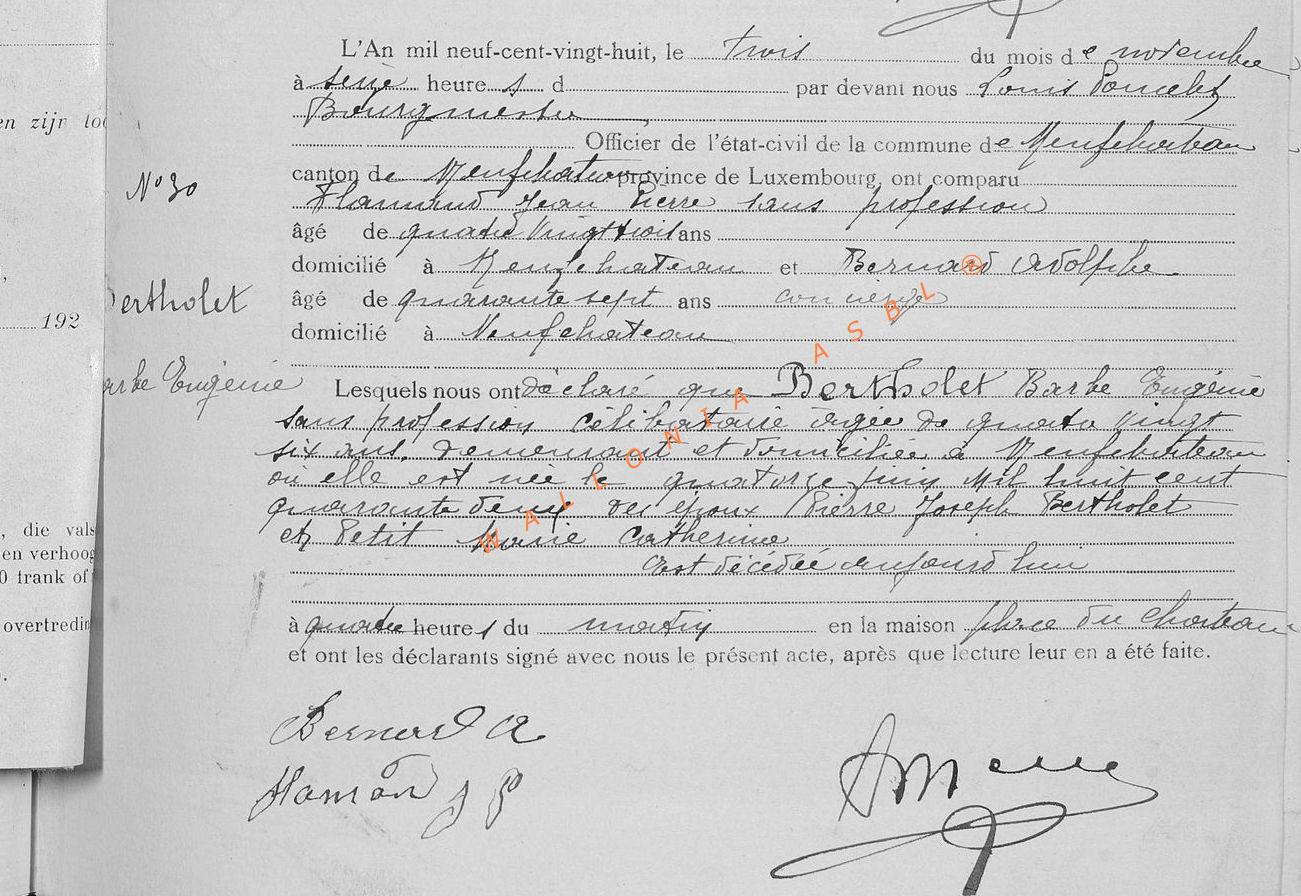 L'An mil neuf-cent-vingt-huit, le trois du mois de novembre
à seize heures d par devant nous Louis
Bourgmestre
en zijn
Officier de l'état-civil de la commune de Neufchateau
canton de Neufchateau province de Luxembourg, ont comparu
N° 30
Jean Pierre sans profession
âgé de quatre vingt trois ans
domicilié à Neufchateau et Bernard Adolphe
Bertholet
âgé de quarante sept ans concierge
192
domicilié à Neufchateau
Barbe Eugénie
Lesquels nous ont déclaré que Bertholet Barbe Eugénie
sans profession célibataire agée de quatre vingt
six ans, demeurant et domiciliée à Neufchateau
où elle est née le quatorze juin mil huit cent
quarante deux des époux Pierre Joseph Bertholet
et Petit Marie Catherine
Est décédée aujourd'hui
, die vals
en verhoog
0 frank of
à quatre heures du matin en la maison place du Chateau
overtredin
et ont les déclarants signé avec nous le présent acte, après que lecture leur en a été faite.
Bernard A
J P
WALLONIA ASBL ®